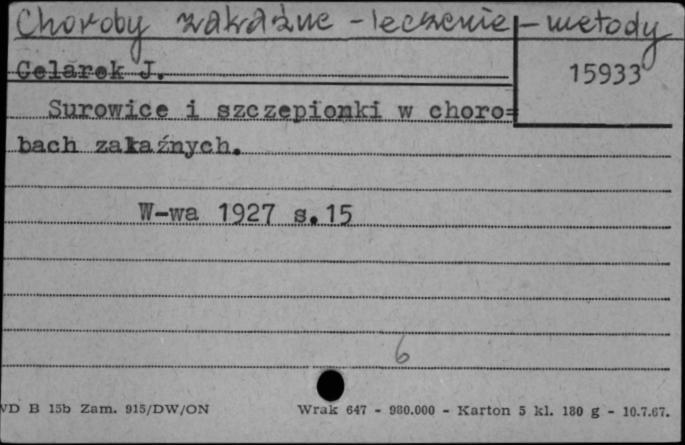 Choroby zakaźne - leczenie - metody
Celarek J.
15933
Surowice i szczepionki w choro=
bach zakaźnych.
W-wa 1927 s.15
6
VD B 15b Zam. 915/DW/ON
Wrak 647 - 980.000 - Karton 5 kl. 180 g - 10.7.67.